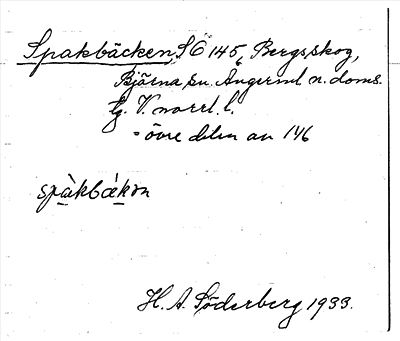 Spakbäcken, SÖ 145, Bergsskog,
Björna sn. Ångerml n. doms.
tg. V. norrl. l.
= övre delen av 146
spàkbákən
H. A. Söderberg 1933.